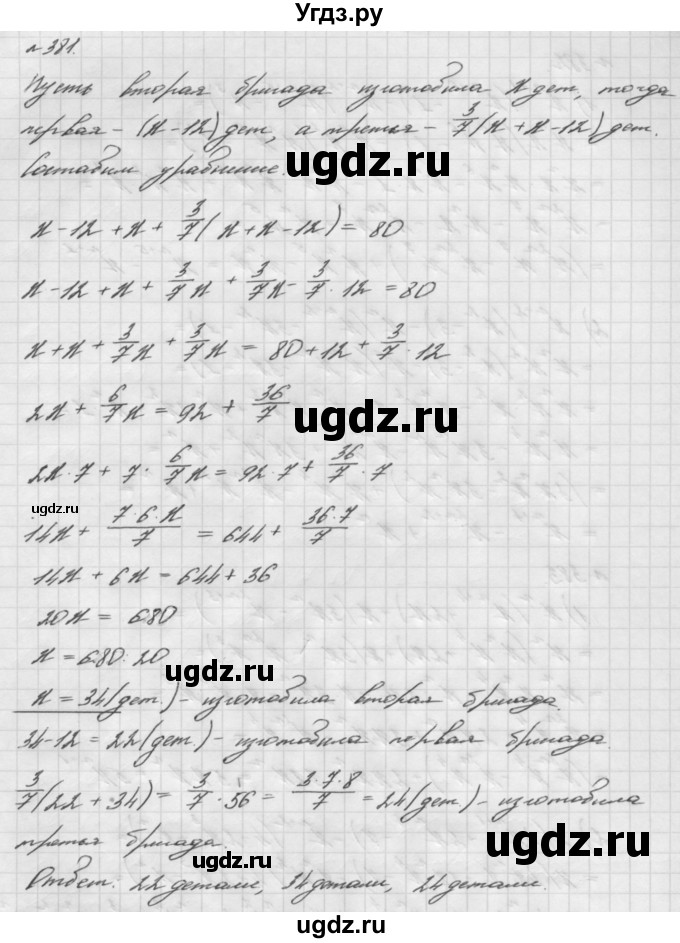 Угдз.ру
№381.
Пусть вторая бригада изготовила x дет, тогда
первая – (x-12) дет, а третья – 3/7 (x+x-12) дет.
ugdz.ru
Составим уравнение.
x-12+x+ 3/7 (x+x-12) = 80
x-12+x+ 3/7 x + 3/7 x - 3/7 · 12 = 80
x+x+ 3/7 x + 3/7 x = 80+12+ 3/7 · 12
2x+ 6/7 x = 92 + 36/7
ugdz.ru
2x·7 + 7· 6/7 x = 92·7+ 36/7 ·7
ugdz.ru
14x+ 7·6·x/7 = 644+ 36·7/7
14x+6x=644+36
20x = 680
x = 680:20
ugdz.ru
x = 34 (дет.) – изготовила вторая бригада.
34-12 = 22 (дет.) – изготовила первая бригада.
3/7 (22+34) = 3/7 · 56 = 3·7·8/7 = 24 (дет) – изготовила
третья бригада.
ugdz.ru
ugdz.ru
Ответ: 22 детали, 34 детали, 24 детали.
ugdz.ru